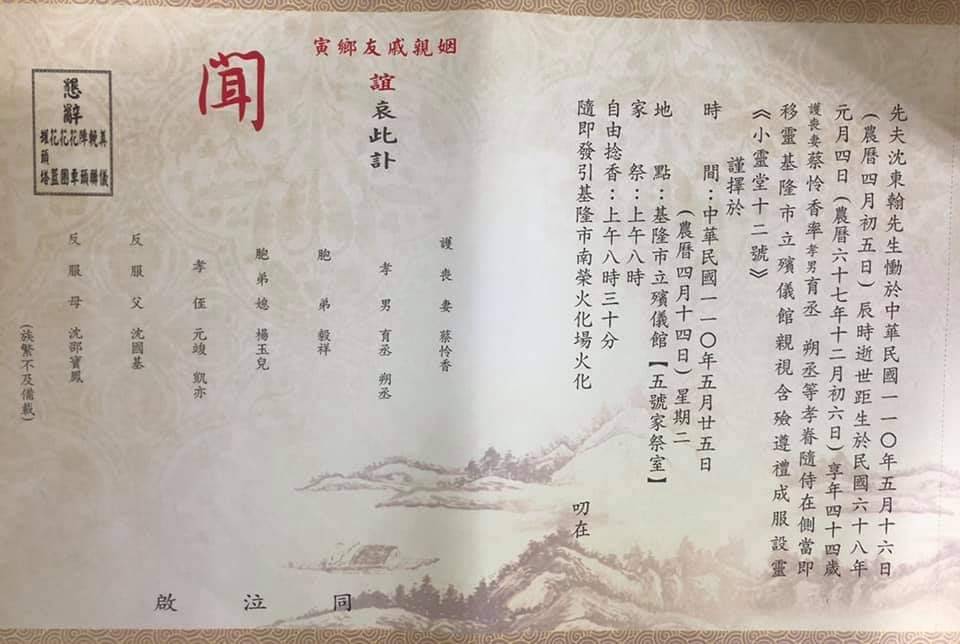 先夫沈東翰先生慟於中華民國一一〇年五月十六日
(農曆四月初五日)辰時逝世距生於民國六十八年
元月四日(農曆六十七年十二月初六日)享年四十四歲
護喪妻蔡怜香率孝男育丞 朔丞等孝眷隨侍在側當即
移靈基隆市立殯儀館親視含殮遵禮成服設靈
《小靈堂十二號》
謹擇於
時 間:中華民國一一〇年五月廿五日
(農曆四月十四日)星期二
地 點:基隆市立殯儀館【五號家祭室】
家 祭:上午八時
自由捻香:上午八時三十分
隨即發引基隆市南榮火化場火化
叨在
姻親戚友鄉寅
誼哀此訃
聞
護喪妻 蔡怜香
孝男 育丞 朔丞
胞弟 毅祥
胞弟媳 楊玉兒
孝侄 元竣 凱亦
反服父 沈國基
反服母 沈鄒寶鳳
(族繁不及備載)
同泣啟
懇辭
奠儀
輓聯
陣頭
花車
花圈
花籃
罐頭塔